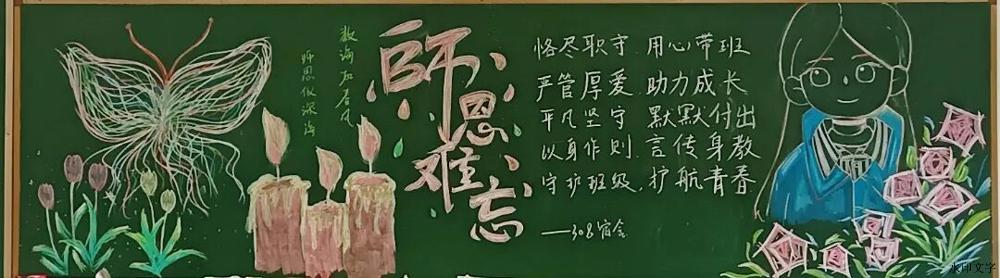 教诲如春风
师恩似深海
師恩难忘
恪尽职守,用心带班
严管厚爱,助力成长
平凡坚守,默默付出
以身作则,言传身教
守护班级,护航青春
——308宿舍
水印文字